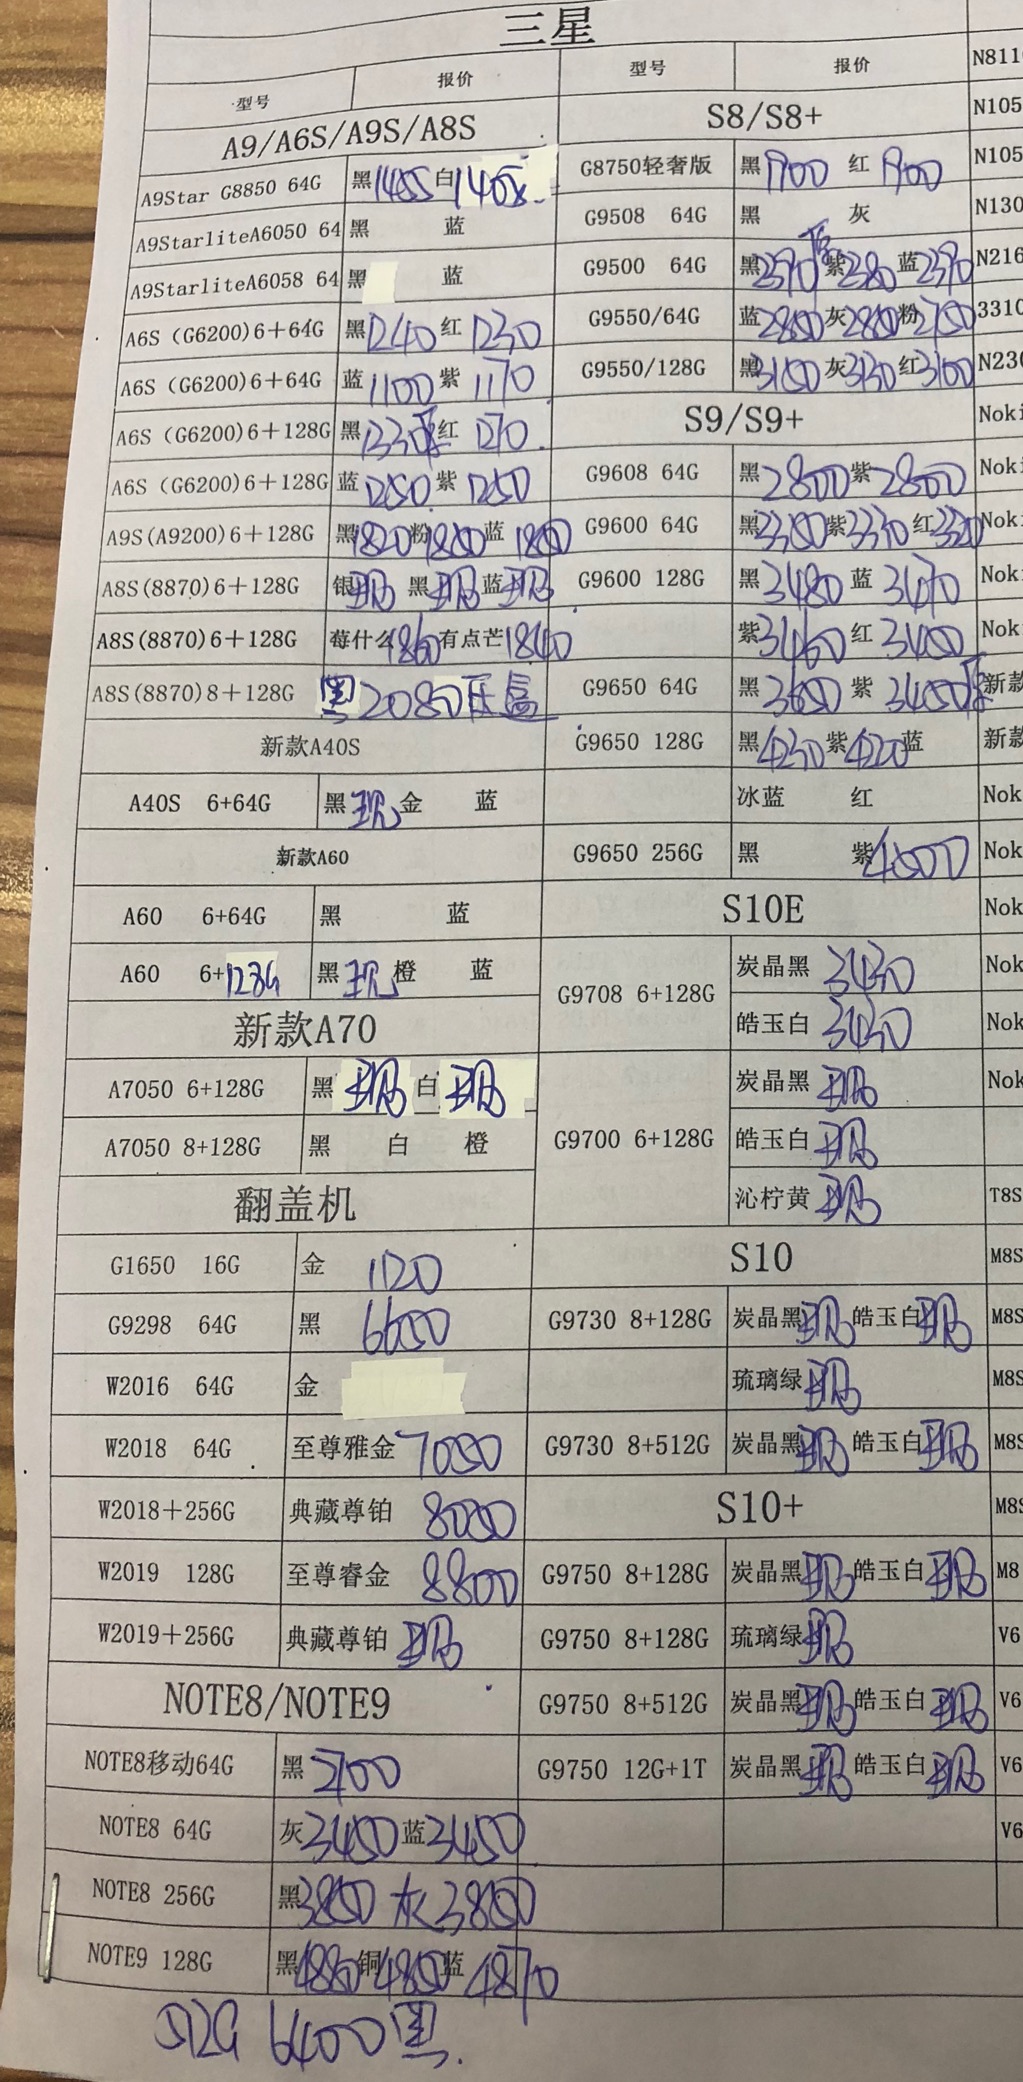 三星
型号 报价 型号 报价 N811
A9/A6S/A9S/A8S S8/S8+ N105
A9Star G8850 64G 黑1455 白 G8750轻奢版 黑1900 红1900 N105
A9StarliteA6050 64 黑 蓝 G9508 64G 黑 灰 N130
A9StarliteA6058 64 黑 蓝 G9500 64G 黑2390 紫2380 蓝2390 N216
A6S (G6200)6+64G 黑1240 红1230 G9550/64G 蓝2850 灰 粉2750 3310
A6S (G6200)6+64G 蓝1100 紫1170 G9550/128G 黑3150 灰3130 红3100 N230
A6S (G6200)6+128G 黑1230 红1270 S9/S9+ Noki
A6S (G6200)6+128G 蓝1250 紫1250 G9608 64G 黑2800 紫2800 Noki
A9S(A9200)6+128G 黑1820 粉1850 蓝 G9600 64G 黑3350 紫3330 红3320 Noki
A8S(8870)6+128G 银 黑 蓝 G9600 128G 黑3480 蓝3470 Noki
A8S(8870)6+128G 莓什么1860 有点芒1840 紫3460 红3450 Nok
A8S(8870)8+128G 黑2080压盒 G9650 64G 黑3650 紫3450压 新款
新款A40S G9650 128G 黑4230 紫4220 蓝 新款
A40S 6+64G 黑现 金 蓝 冰蓝 红 Nok
新款A60 G9650 256G 黑 紫4800 Nok
A60 6+64G 黑 蓝 S10E Nok
A60 6+128G 黑现 橙 蓝 G9708 6+128G 炭晶黑 3430 Nok
新款A70 皓玉白 3430 Nok
A7050 6+128G 黑 白 G9700 6+128G 炭晶黑 Nok
A7050 8+128G 黑 白 橙 皓玉白
翻盖机 沁柠黄 T8S
G1650 16G 金 1120 S10 M8S
G9298 64G 黑 6650 G9730 8+128G 炭晶黑 皓玉白 M8S
W2016 64G 金 琉璃绿 M8S
W2018 64G 至尊雅金 7050 G9730 8+512G 炭晶黑 皓玉白 M8S
W2018+256G 典藏尊铂 8050 S10+ M8S
W2019 128G 至尊睿金 8800 G9750 8+128G 炭晶黑 皓玉白 M8
W2019+256G 典藏尊铂 G9750 8+128G 琉璃绿 V6
NOTE8/NOTE9 G9750 8+512G 炭晶黑 皓玉白 V6
NOTE8移动64G 黑 2700 G9750 12G+1T 炭晶黑 皓玉白 V6
NOTE8 64G 灰3450 蓝3450 V6
NOTE8 256G 黑3850 灰3850
NOTE9 128G 黑4880 铜4850 蓝4870
512G 6400黑.